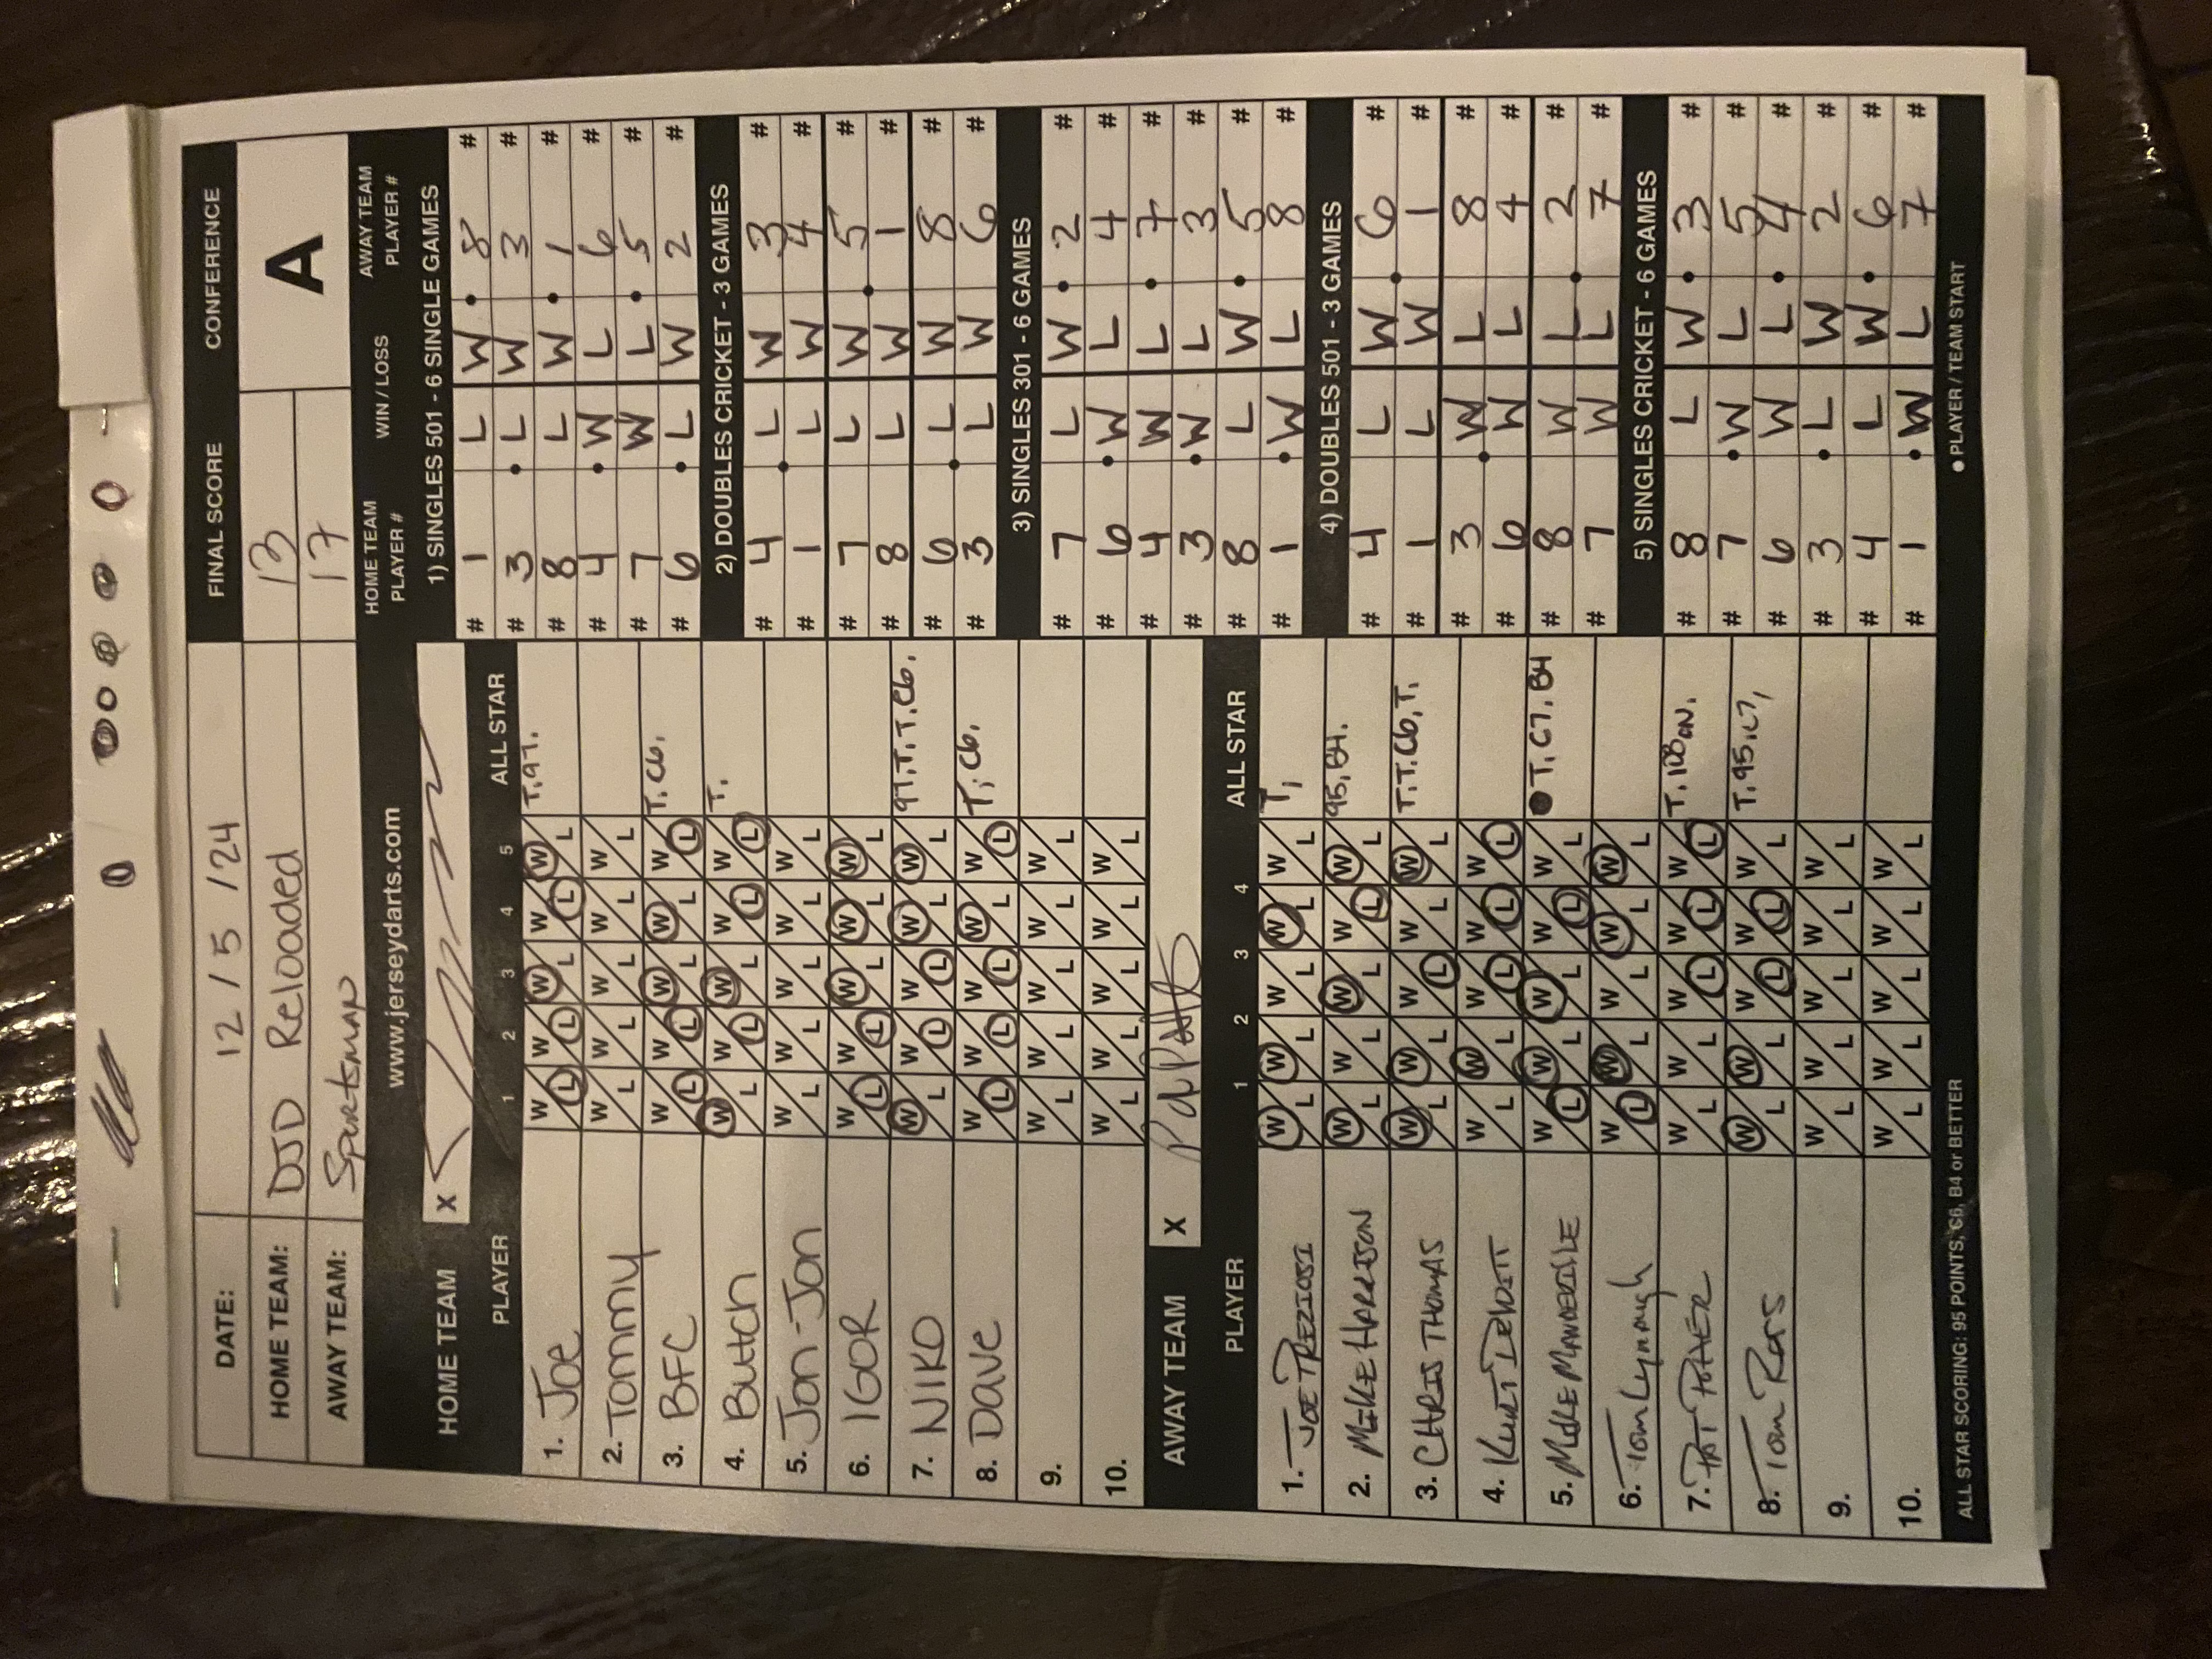 DATE: 12 / 5 / 24 FINAL SCORE CONFERENCE
HOME TEAM: DJD Reloaded 13 A
AWAY TEAM: Sportsman 17
www.jerseydarts.com
HOME TEAM X
PLAYER 1 2 3 4 5 ALL STAR
1. Joe W L W L W L W L W L T.9T.
2. Tommy W L W L W L W L W L
3. BFC W L W L W L W L W L T.C6.
4. Butch W L W L W L W L W L T.
5. Jon-Jon W L W L W L W L W L
6. IGOR W L W L W L W L W L
7. NIKO W L W L W L W L W L 9T.T.T.C6.
8. Dave W L W L W L W L W L T, C6.
9. W L W L W L W L W L
10. W L W L W L W L W L
AWAY TEAM X
PLAYER 1 2 3 4 ALL STAR
1. JOE PREZIOSI W L W L W L W L W L T,
2. MIKE HARRISON W L W L W L W L W L 95. B4.
3. CHRIS THOMAS W L W L W L W L W L T.T.C6.T.
4. KURT W L W L W L W L W L
5. MIKE MANDEVILLE W L W L W L W L W L T. C7. B4
6. Tom Lynaugh W L W L W L W L W L
7. PAT W L W L W L W L W L T. 180 ON.
8. Tom Ross W L W L W L W L W L T. 95. C7,
9. W L W L W L W L W L
10. W L W L W L W L W L
ALL STAR SCORING: 95 POINTS, C6, B4 or BETTER
HOME TEAM PLAYER # WIN / LOSS AWAY TEAM PLAYER #
1) SINGLES 501 - 6 SINGLE GAMES
# 1 L W 8 #
# 3 L W 3 #
# 8 L W 1 #
# 4 W L 6 #
# 7 W L 5 #
# 6 L W 2 #
2) DOUBLES CRICKET - 3 GAMES
# 4 L W 3 #
# 1 L W 4 #
# 7 L W 5 #
# 8 L W 1 #
# 6 L W 8 #
# 3 L W 6 #
3) SINGLES 301 - 6 GAMES
# 7 L W 2 #
# 6 W L 4 #
# 4 W L 7 #
# 3 W L 3 #
# 8 L W 5 #
# 1 W L 8 #
4) DOUBLES 501 - 3 GAMES
# 4 L W 6 #
# 1 L W 1 #
# 3 W L 8 #
# 6 W L 4 #
# 8 W L 2 #
# 7 W L 7 #
5) SINGLES CRICKET - 6 GAMES
# 8 L W 3 #
# 7 W L 5 #
# 6 W L 4 #
# 3 L W 2 #
# 4 L W 6 #
# 1 W L 7 #
● PLAYER / TEAM START